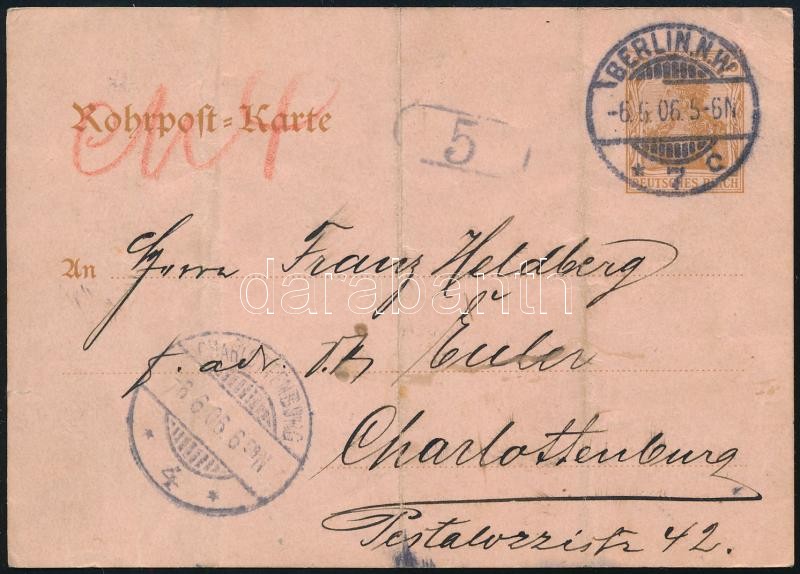 BERLIN.N.W.
-6.6.06.5-6N
* 7 c
DEUTSCHES REICH
Rohrpost-Karte
5
An
Herrn Franz Heldberg
p. adr. Euler
darabanth
CHARLOTTENBURG
-6.6.06.6
* 4 *
Charlottenburg
Pestalozzistr 42.